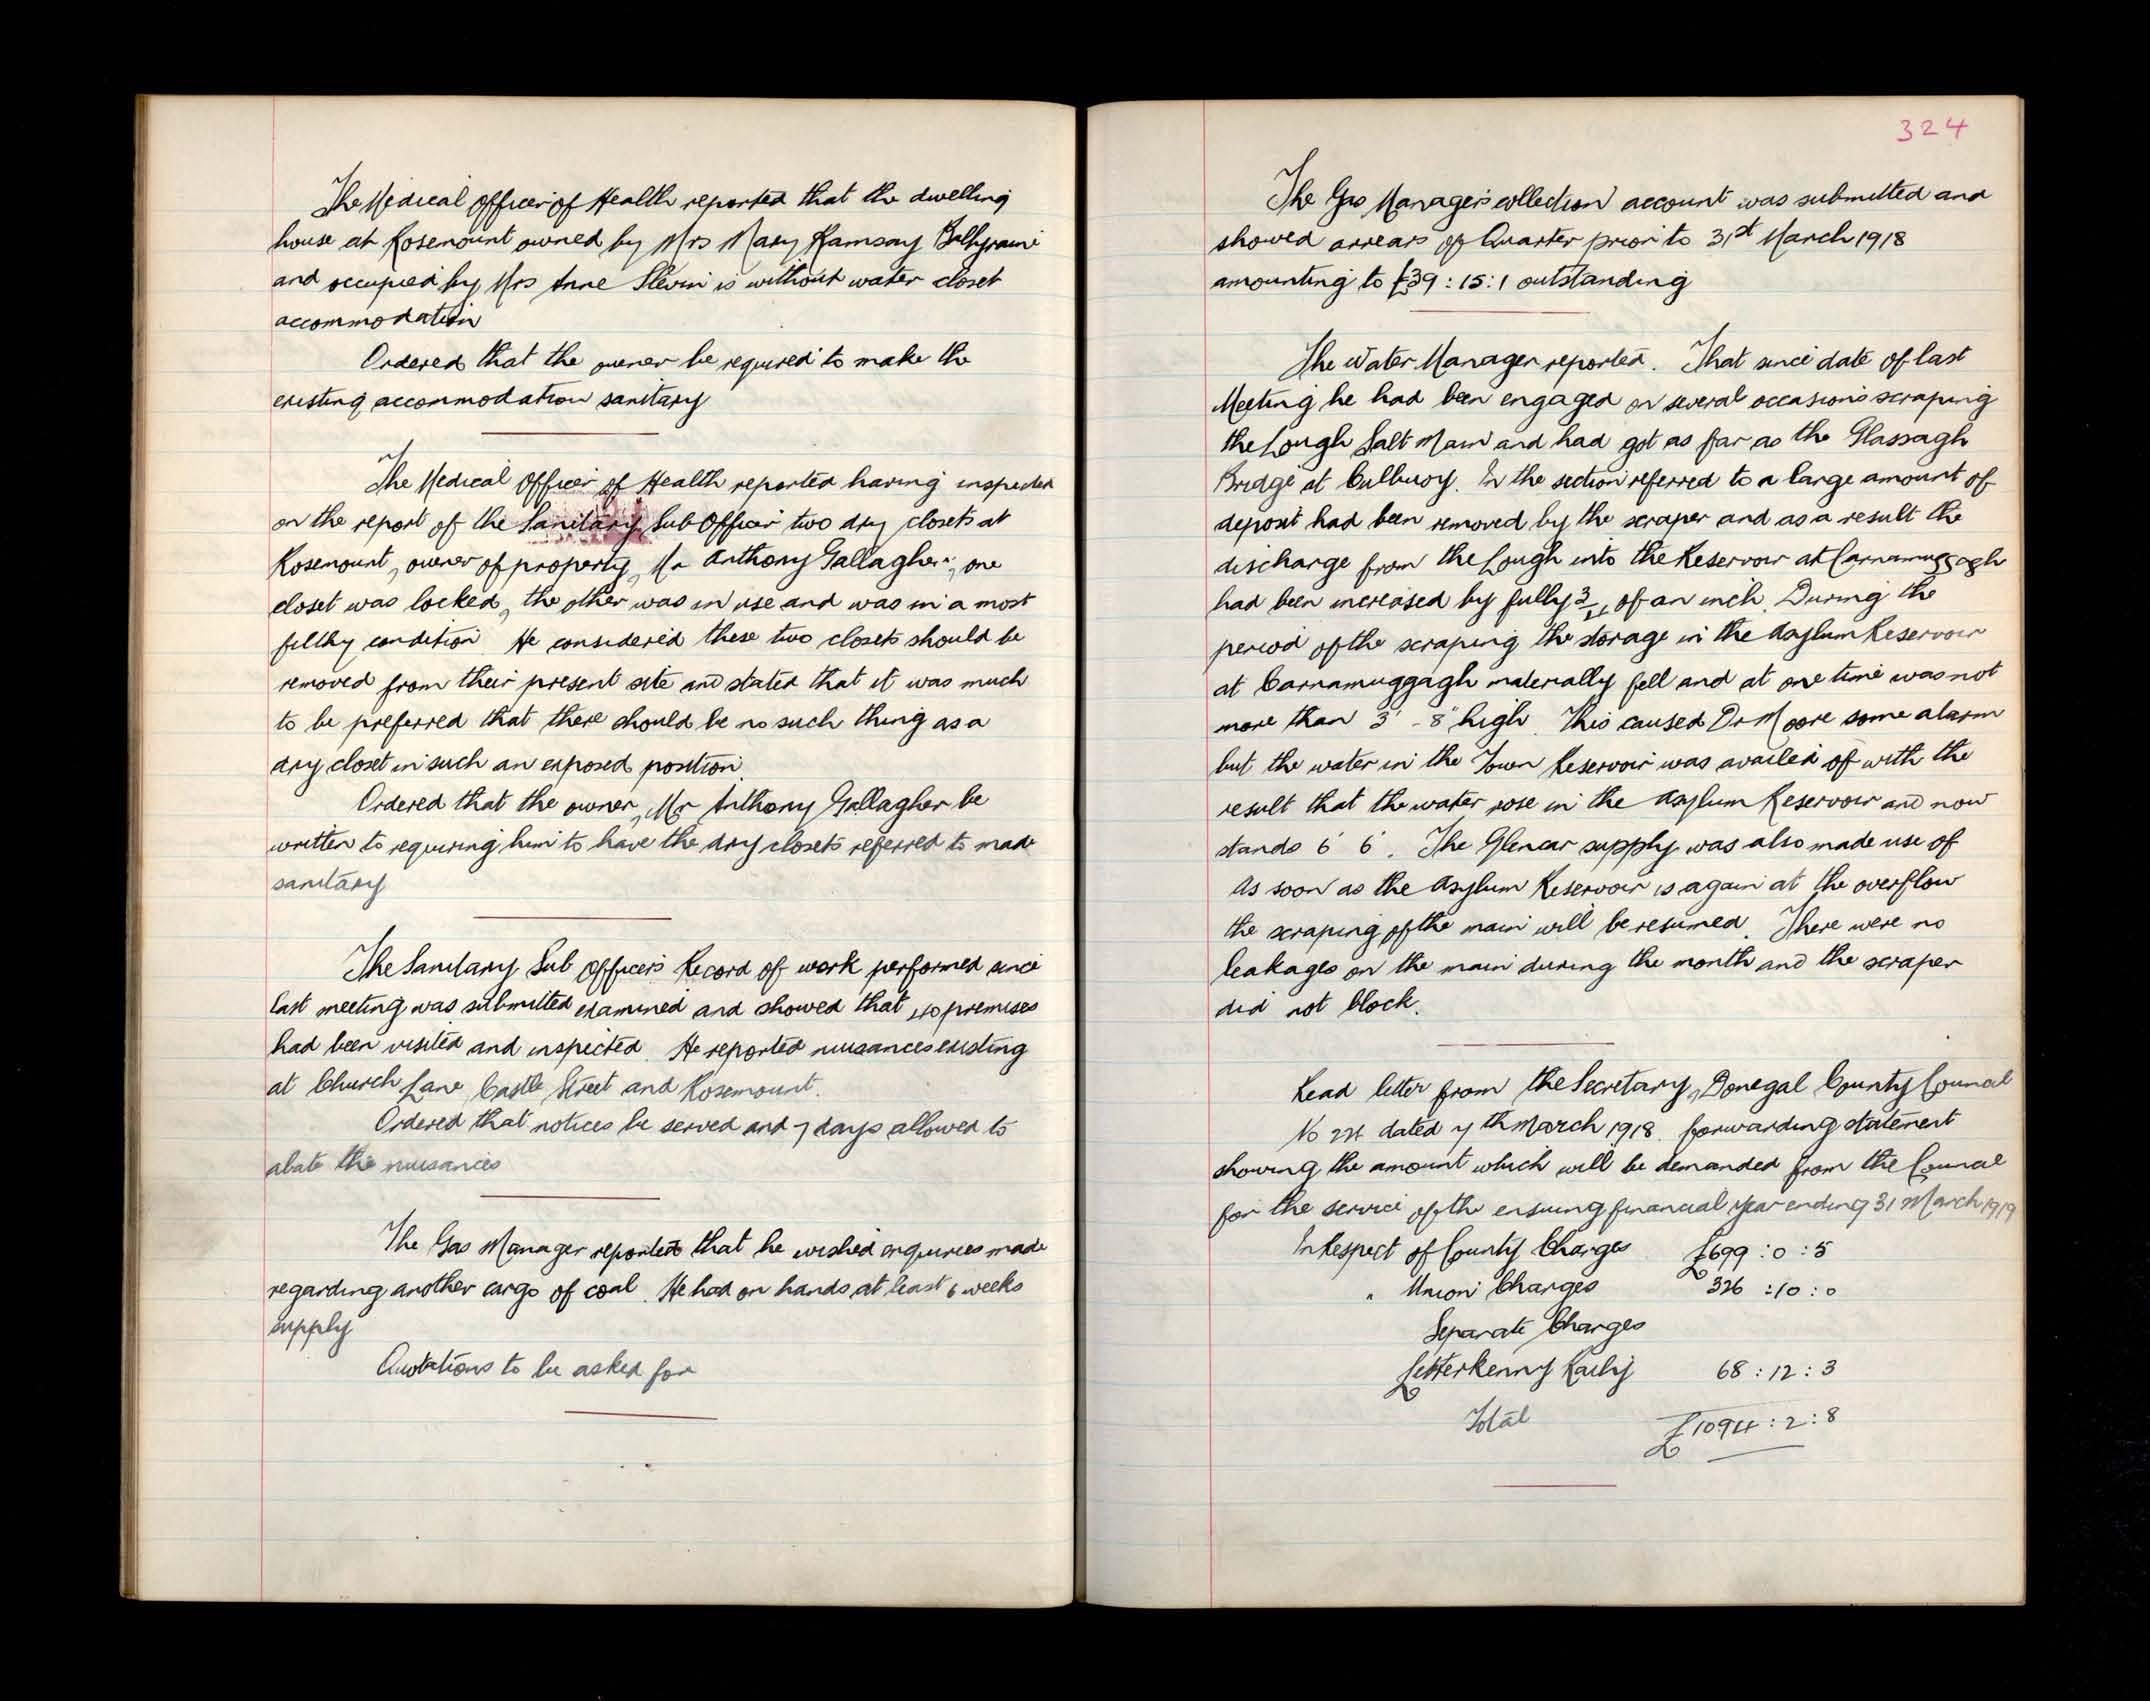 The Medical Officer of Health reported that the dwelling
house at Rosemount owned by Mrs Mary Ramsay Ballyraine
and occupied by Mrs Anne Slevin is without water closet
accommodation
Ordered that the owner be required to make the
existing accommodation sanitary
The Medical Officer of Health reported having inspected
on the report of the Sanitary Sub Officer two dry closets at
Rosemount, owner of property, Mr Anthony Gallagher, one
closet was locked, the other was in use and was in a most
filthy condition He considered these two closets should be
removed from their present site and stated that it was much
to be preferred that there should be no such thing as a
dry closet in such an exposed position.
Ordered that the owner, Mr Anthony Gallagher be
written to requiring him to have the dry closets referred to made
sanitary
The Sanitary Sub Officer's Record of work performed since
last meeting was submitted examined and showed that premises
had been visited and inspected. He reported nuisances existing
at Church Lane Castle Street and Rosemount.
Ordered that notices be served and 7 days allowed to
abate the nuisances
The Gas Manager reported that he wished enquiries made
regarding another cargo of coal. He had on hands at least 6 weeks
supply
Quotations to be asked for
324
The Gas Manager's collection account was submitted and
showed arrears of Quarter prior to 31st March 1918
amounting to £39 : 15 : 1 outstanding
The Water Manager reported. That since date of last
Meeting he had been engaged on several occasions scraping
the Lough Salt Main and had got as far as the Glassagh
Bridge at Culbuoy. In the section referred to a large amount of
deposit had been removed by the scraper and as a result the
discharge from the Lough into the Reservoir at Carnamuggagh
had been increased by fully 3/4 of an inch. During the
period of the scraping the storage in the Asylum Reservoir
at Carnamuggagh materially fell and at one time was not
more than 3' - 8" high. This caused Dr Moore some alarm
but the water in the Town Reservoir was availed of with the
result that the water rose in the Asylum Reservoir and now
stands 6' 6'. The Glencar supply was also made use of
As soon as the Asylum Reservoir is again at the overflow
the scraping of the main will be resumed. There were no
leakages on the main during the month and the scraper
did not block.
Read letter from the Secretary, Donegal County Council
No dated 7th March 1918. forwarding statement
showing the amount which will be demanded from the Council
for the service of the ensuing financial year ending 31 March 1919
In Respect of County Charges £699 : 0 : 5
" Union Charges 326 : 10 : 0
Separate Charges
Letterkenny Railway 68 : 12 : 3
Total £1094 : 2 : 8